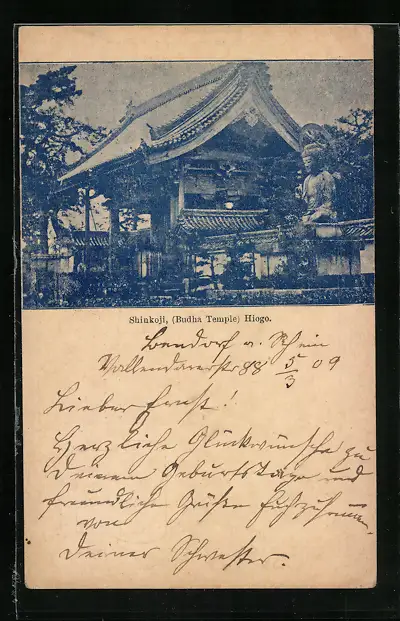 Shinkoji, (Budha Temple) Hiogo.
Bendorf a. Rhein
Vallendarerstr 88 5/3 09
Lieber Ernst!
Herzliche Glückwünsche zu
Deinem Geburtstage und
freundliche Grüße
von
Deiner Schwester.